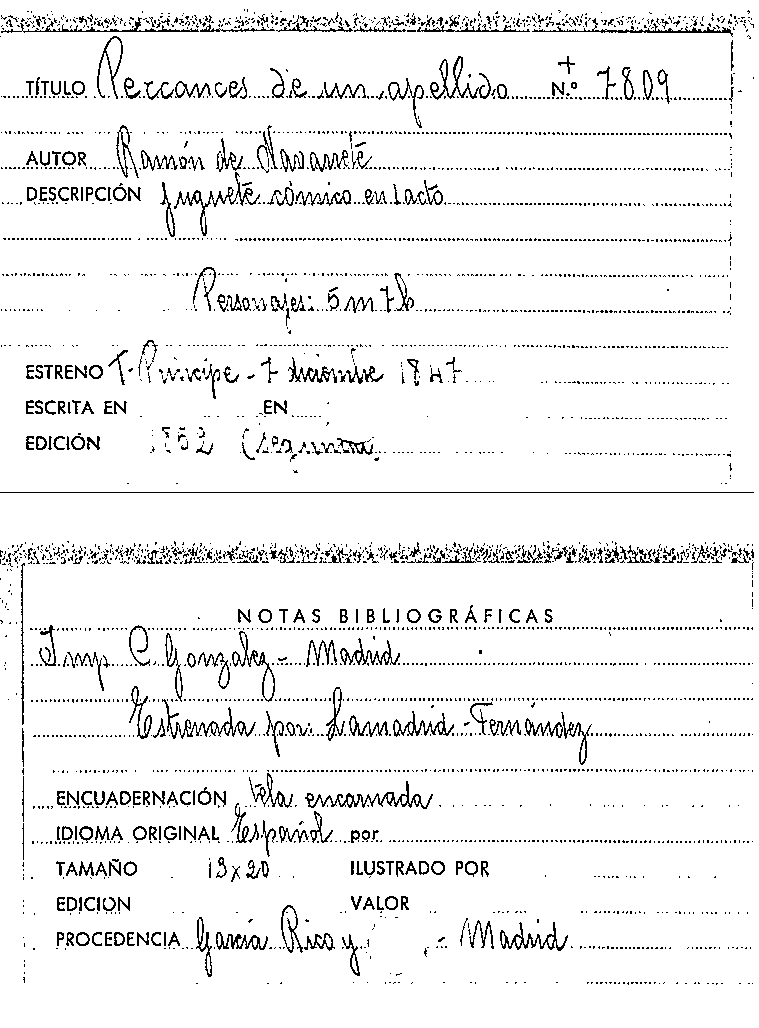 TÍTULO Percances de un apellido N.º 7809
AUTOR Ramón de Navarrete
DESCRIPCIÓN Juguete cómico en 1 acto
Personajes: 5 m 7 h
ESTRENO T. Principe - 7 diciembre 1847
ESCRITA EN EN
EDICIÓN 1852 (segunda)
NOTAS BIBLIOGRÁFICAS
Imp C. Gonzalez - Madrid
Estrenada por: Lamadrid - Fernández
ENCUADERNACIÓN tela encarnada
IDIOMA ORIGINAL Español por
TAMAÑO 13 x 20 ILUSTRADO POR
EDICION VALOR
PROCEDENCIA García Rico y - Madrid